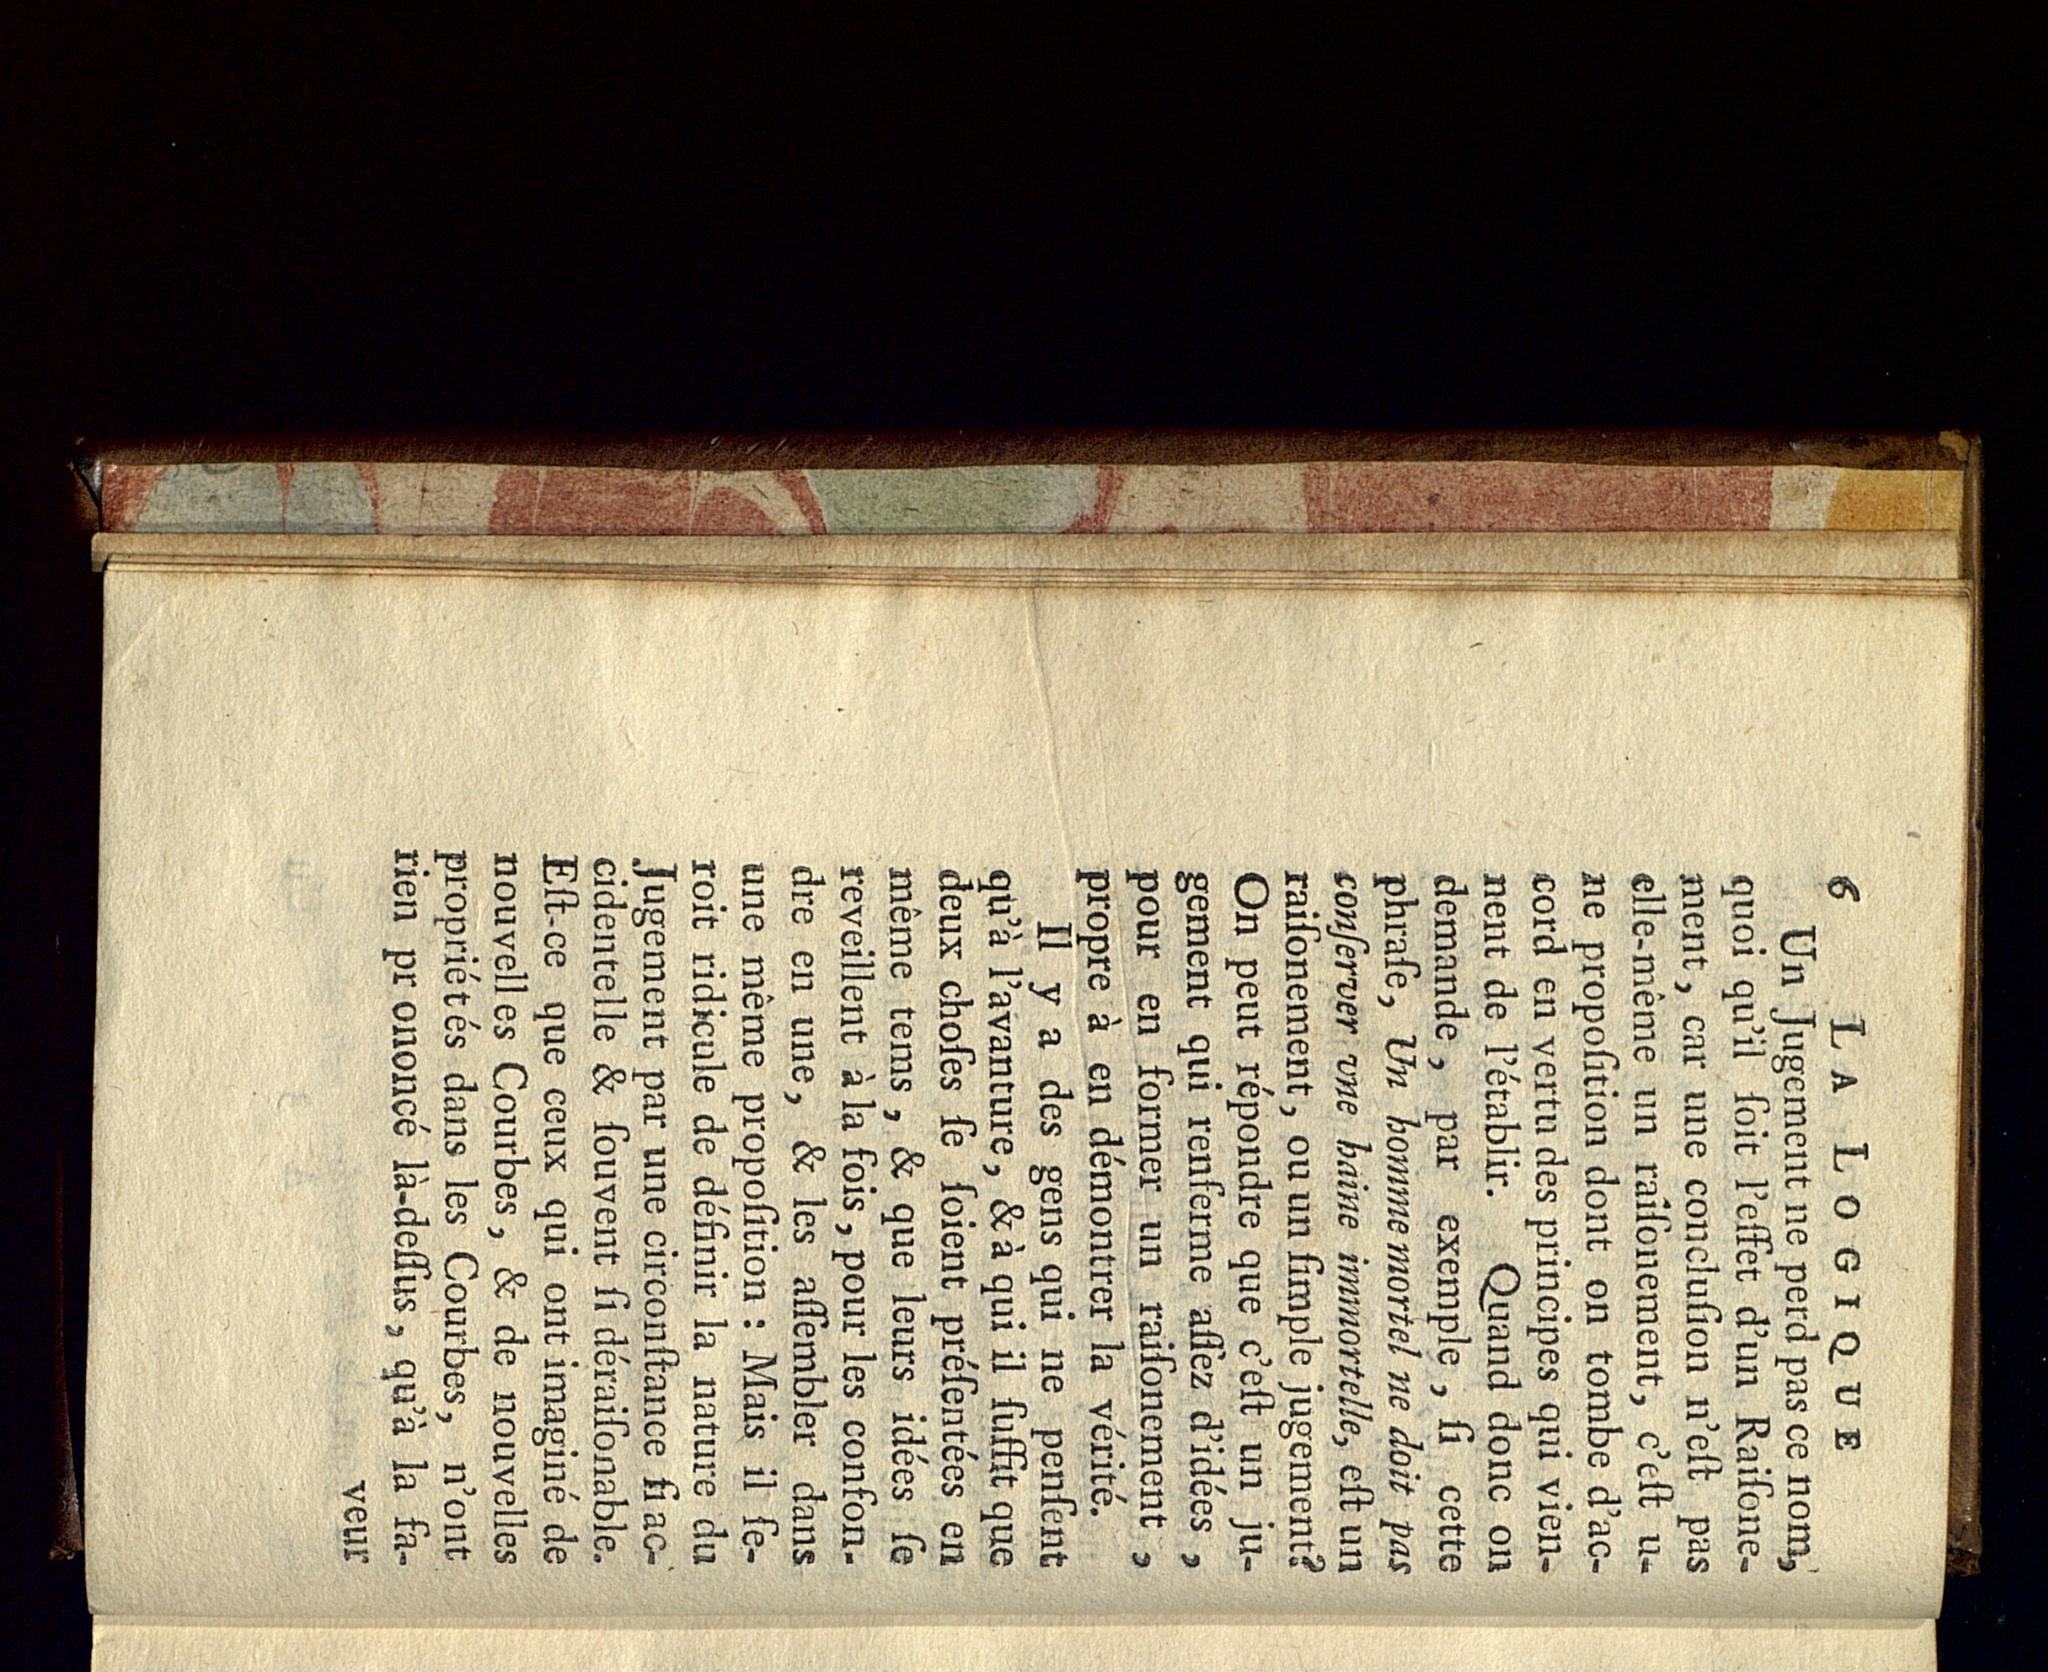 6 LA LOGIQUE
Un Jugement ne perd pas ce nom,
quoi qu'il ſoit l'effet d'un Raiſone-
ment, car une concluſion n'eſt pas
elle-même un raiſonement, c'eſt u-
ne propoſition dont on tombe d'ac-
cord en vertu des principes qui vien-
nent de l'établir. Quand donc on
demande, par exemple, ſi cette
phraſe, Un homme mortel ne doit pas
conſerver vne haine immortelle, eſt un
raiſonement, ou un ſimple jugement?
On peut répondre que c'eſt un ju-
gement qui renferme aſſez d'idées,
pour en former un raiſonement,
propre à en démontrer la vérité.
Il y a des gens qui ne penſent
qu'à l'avanture, & à qui il ſuffit que
deux choſes ſe ſoient préſentées en
même tems, & que leurs idées ſe
reveillent à la fois, pour les confon-
dre en une, & les aſſembler dans
une même propoſition: Mais il ſe-
roit ridicule de définir la nature du
Jugement par une circonſtance ſi ac-
cidentelle & ſouvent ſi déraiſonable.
Eſt-ce que ceux qui ont imaginé de
nouvelles Courbes, & de nouvelles
propriétés dans les Courbes, n'ont
rien prononcé là-deſſus, qu'à la fa-
veur